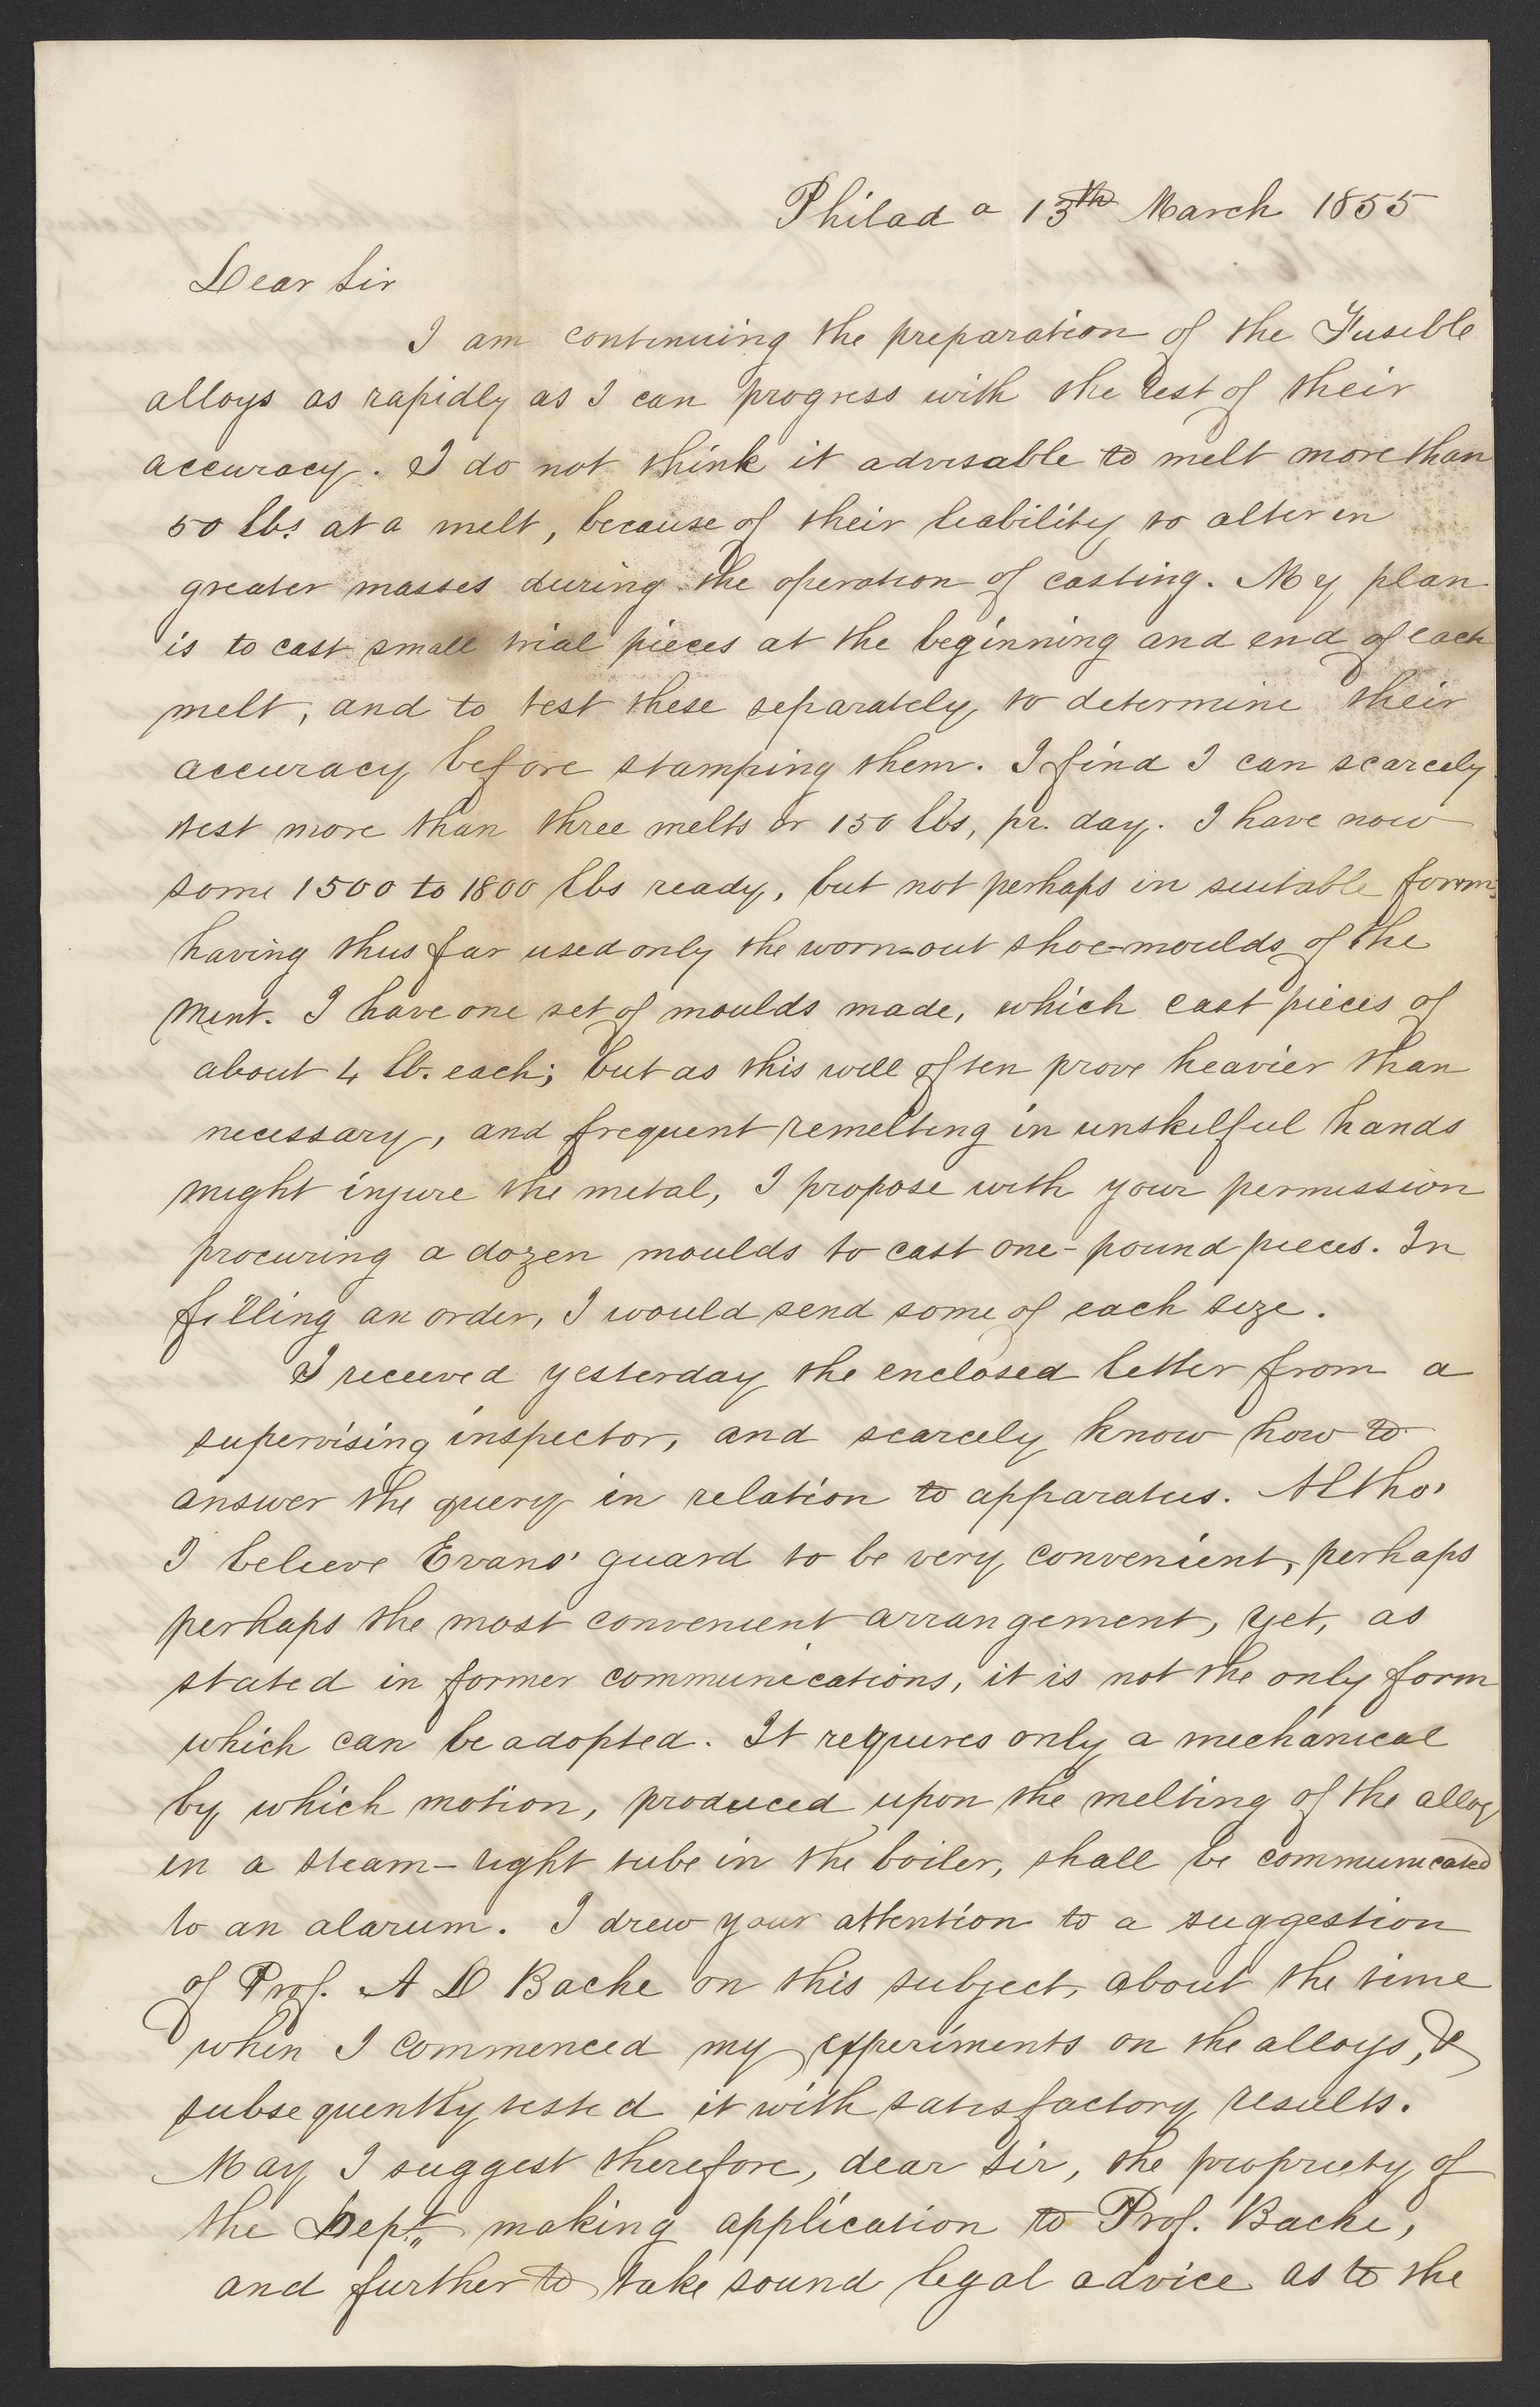 Philada 13th March 1855
Dear Sir
I am continuing the preparation of the Fusible
alloys as rapidly as I can progress with the test of their
accuracy. I do not think it advisable to melt more than
50 lbs. at a melt, because of their liability to alter in
greater masses during the operation of casting. My plan
is to cast small trial pieces at the beginning and end of each
melt, and to test these separately to determine their
accuracy before stamping them. I find I can scarcely
test more than three melts or 150 lbs, pr. day. I have now
some 1500 to 1800 lbs ready, but not perhaps in suitable form,
having thus far used only the worn-out shoe-moulds of the
Mint. I have one set of moulds made, which cast pieces of
about 4 lb. each; but as this will often prove heavier than
necessary, and frequent remelting in unskilful hands
might injure the metal, I propose with your permission
procuring a dozen moulds to cast one-pound pieces. In
filling an order, I would send some of each size.
I received yesterday the enclosed letter from a
supervising inspector, and scarcely know how to
answer the query in relation to apparatus. Altho'
I believe Evans' guard to be very convenient, perhaps
perhaps the most convenient arrangement, yet, as
stated in former communications, it is not the only form
which can be adopted. It requires only a mechanical
by which motion, produced upon the melting of the alloy
in a steam-tight tube in the boiler, shall be communicated
to an alarum. I drew your attention to a suggestion
of Prof. A D Bache on this subject, about the time
when I commenced my experiments on the alloys, &
subsequently tested it with satisfactory results.
May I suggest therefore, dear Sir, the propriety of
the Dept. making application to Prof. Bache,
and further to take sound legal advice as to the